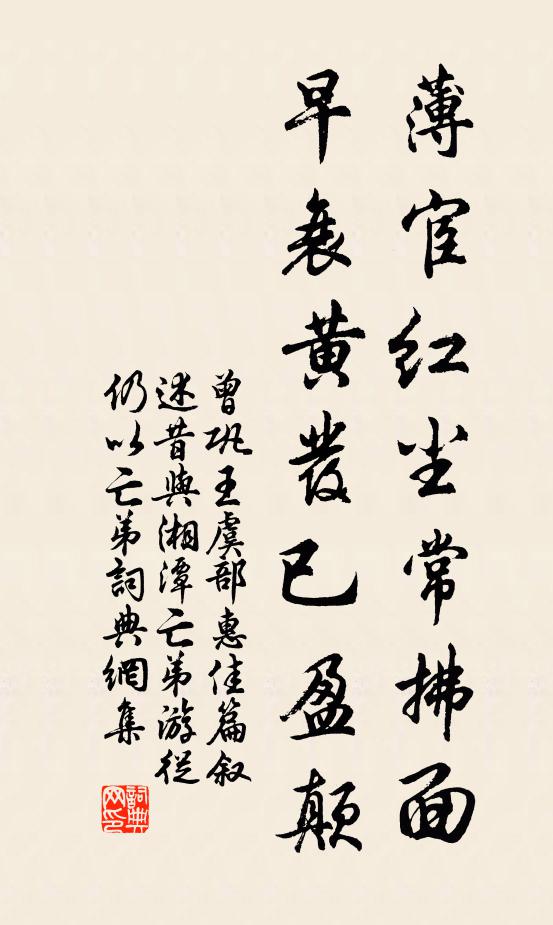 薄宦红尘常拂面
早衰黄發已盈颠
曾巩王虞部惠佳篇叙
述昔與湘潭亡弟游從
仍以亡弟詞典網集
詞典
网印